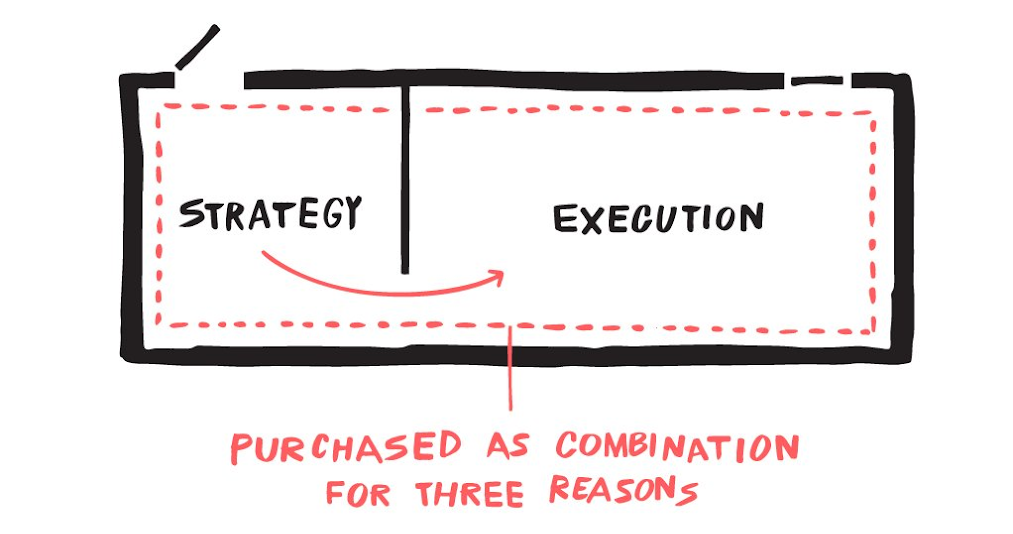 STRATEGY
EXECUTION
PURCHASED AS COMBINATION
FOR THREE REASONS